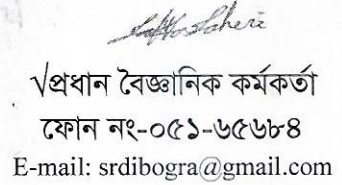 √প্রধান বৈজ্ঞানিক কর্মকর্তা
ফোন নং-০৫১-৬৫৬৮৪
E-mail: srdibogra@gmail.com